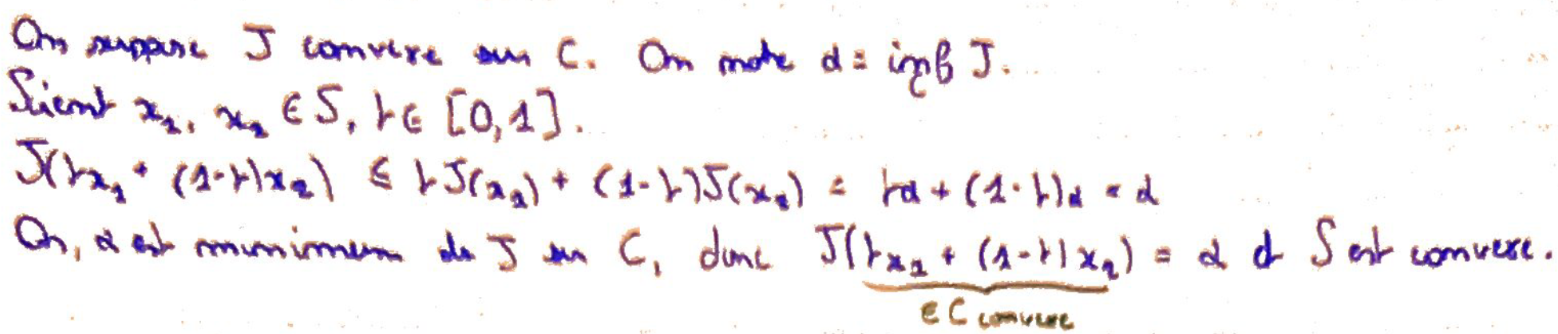 On suppose J convexe sur C. On note α = inf J.
Soient x₁, x₂ ∈ S, t ∈ [0,1].
J(tx₁ + (1-t)x₂) ≤ tJ(x₁) + (1-t)J(x₂) = tα + (1-t)α = α
Or, α est minimum de J sur C, donc J(tx₁ + (1-t)x₂) = α et S est convexe.
∈ C convexe